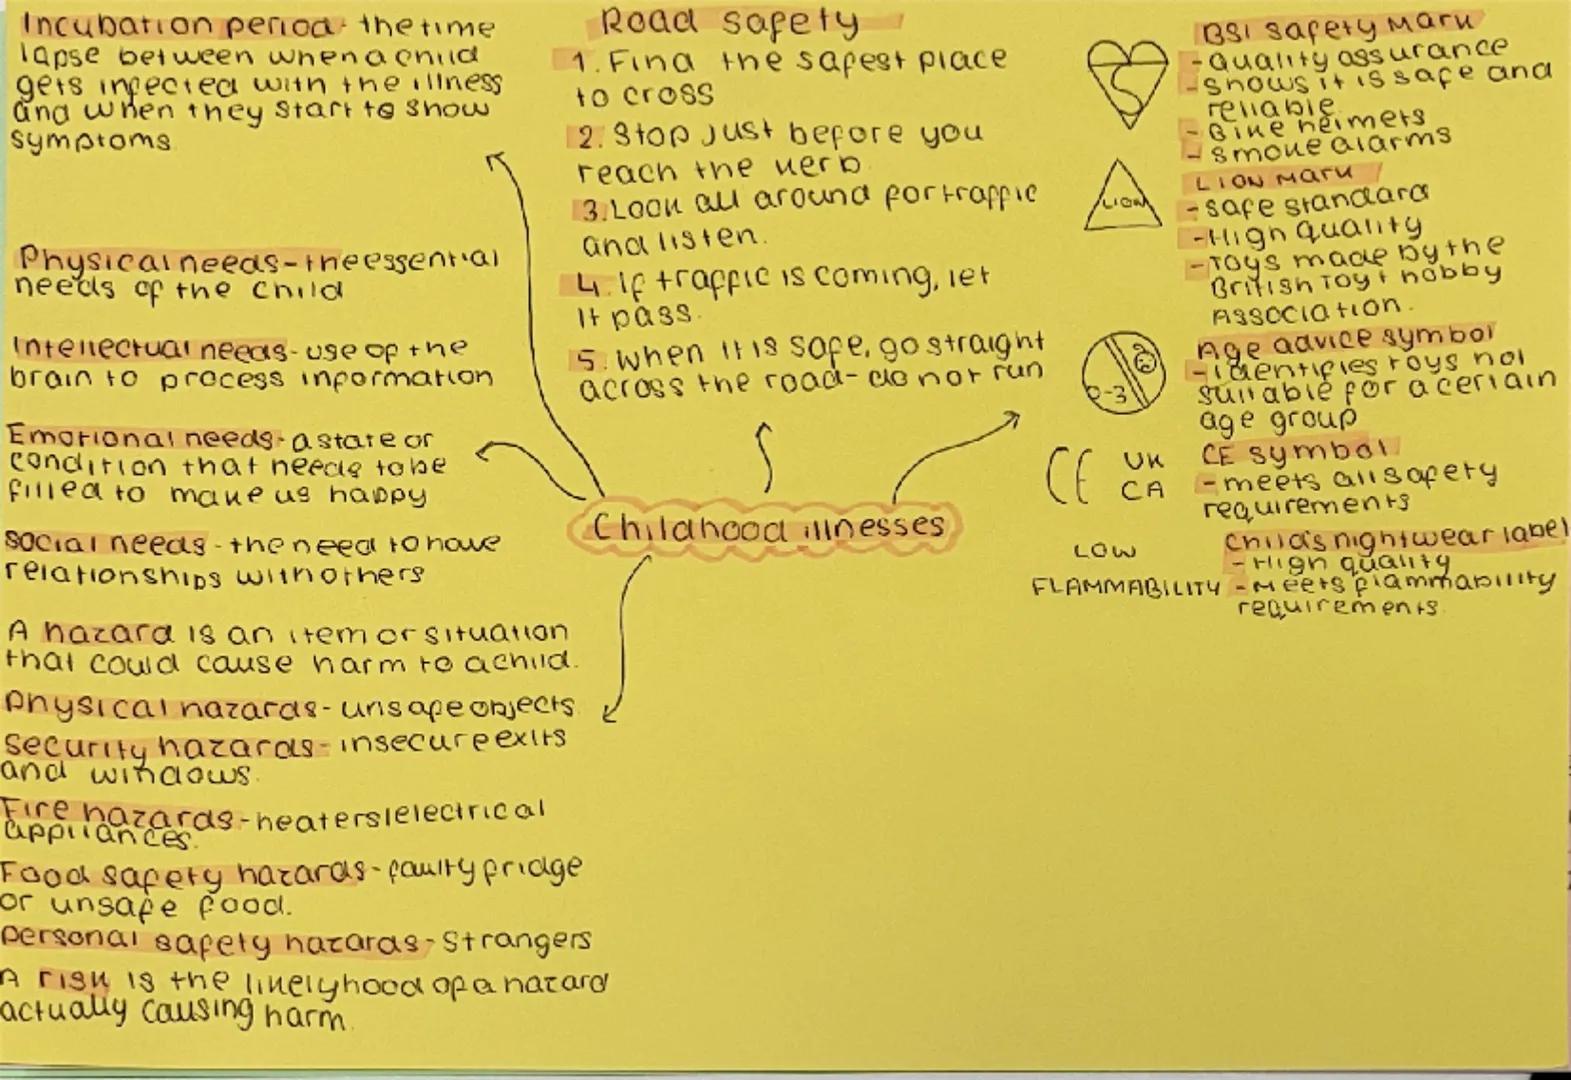 Incubation period- the time
lapse between when a child
gets infected with the illness
and when they start to show
symptoms
Physical needs - the essential
needs of the child
Intellectual needs- use of the
brain to process information
Emotional needs- a state or
condition that needs to be
filled to make us happy
Social needs - the need to have
relationships with others
A hazard is an item or situation
that could cause harm to a child.
Physical hazards- unsafe objects
Security hazards- insecure exits
and windows.
Fire hazards- heaters/electrical
appliances.
Food safety hazards- faulty fridge
or unsafe food.
Personal safety hazards- Strangers
A risk is the likelyhood of a hazard
actually causing harm.
Road safety
1. Find the safest place
to cross
2. Stop just before you
reach the kerb.
3. Look all around for traffic
and listen.
4. If traffic is coming, let
it pass.
5. When it is safe, go straight
across the road- do not run
Childhood illnesses
BSI Safety Mark
- Quality assurance
- Shows it is safe and
reliable.
- Bike helmets
- Smoke alarms
LION
LION Mark
- Safe standard
- High quality
- Toys made by the
British Toy + hobby
Association.
0-3
Age advice symbol
- identifies toys not
suitable for a certain
age group
CE UK
CA
CE symbol
- meets all safety
requirements
LOW
FLAMMABILITY
Child's nightwear label
- High quality
- Meets flammability
requirements.